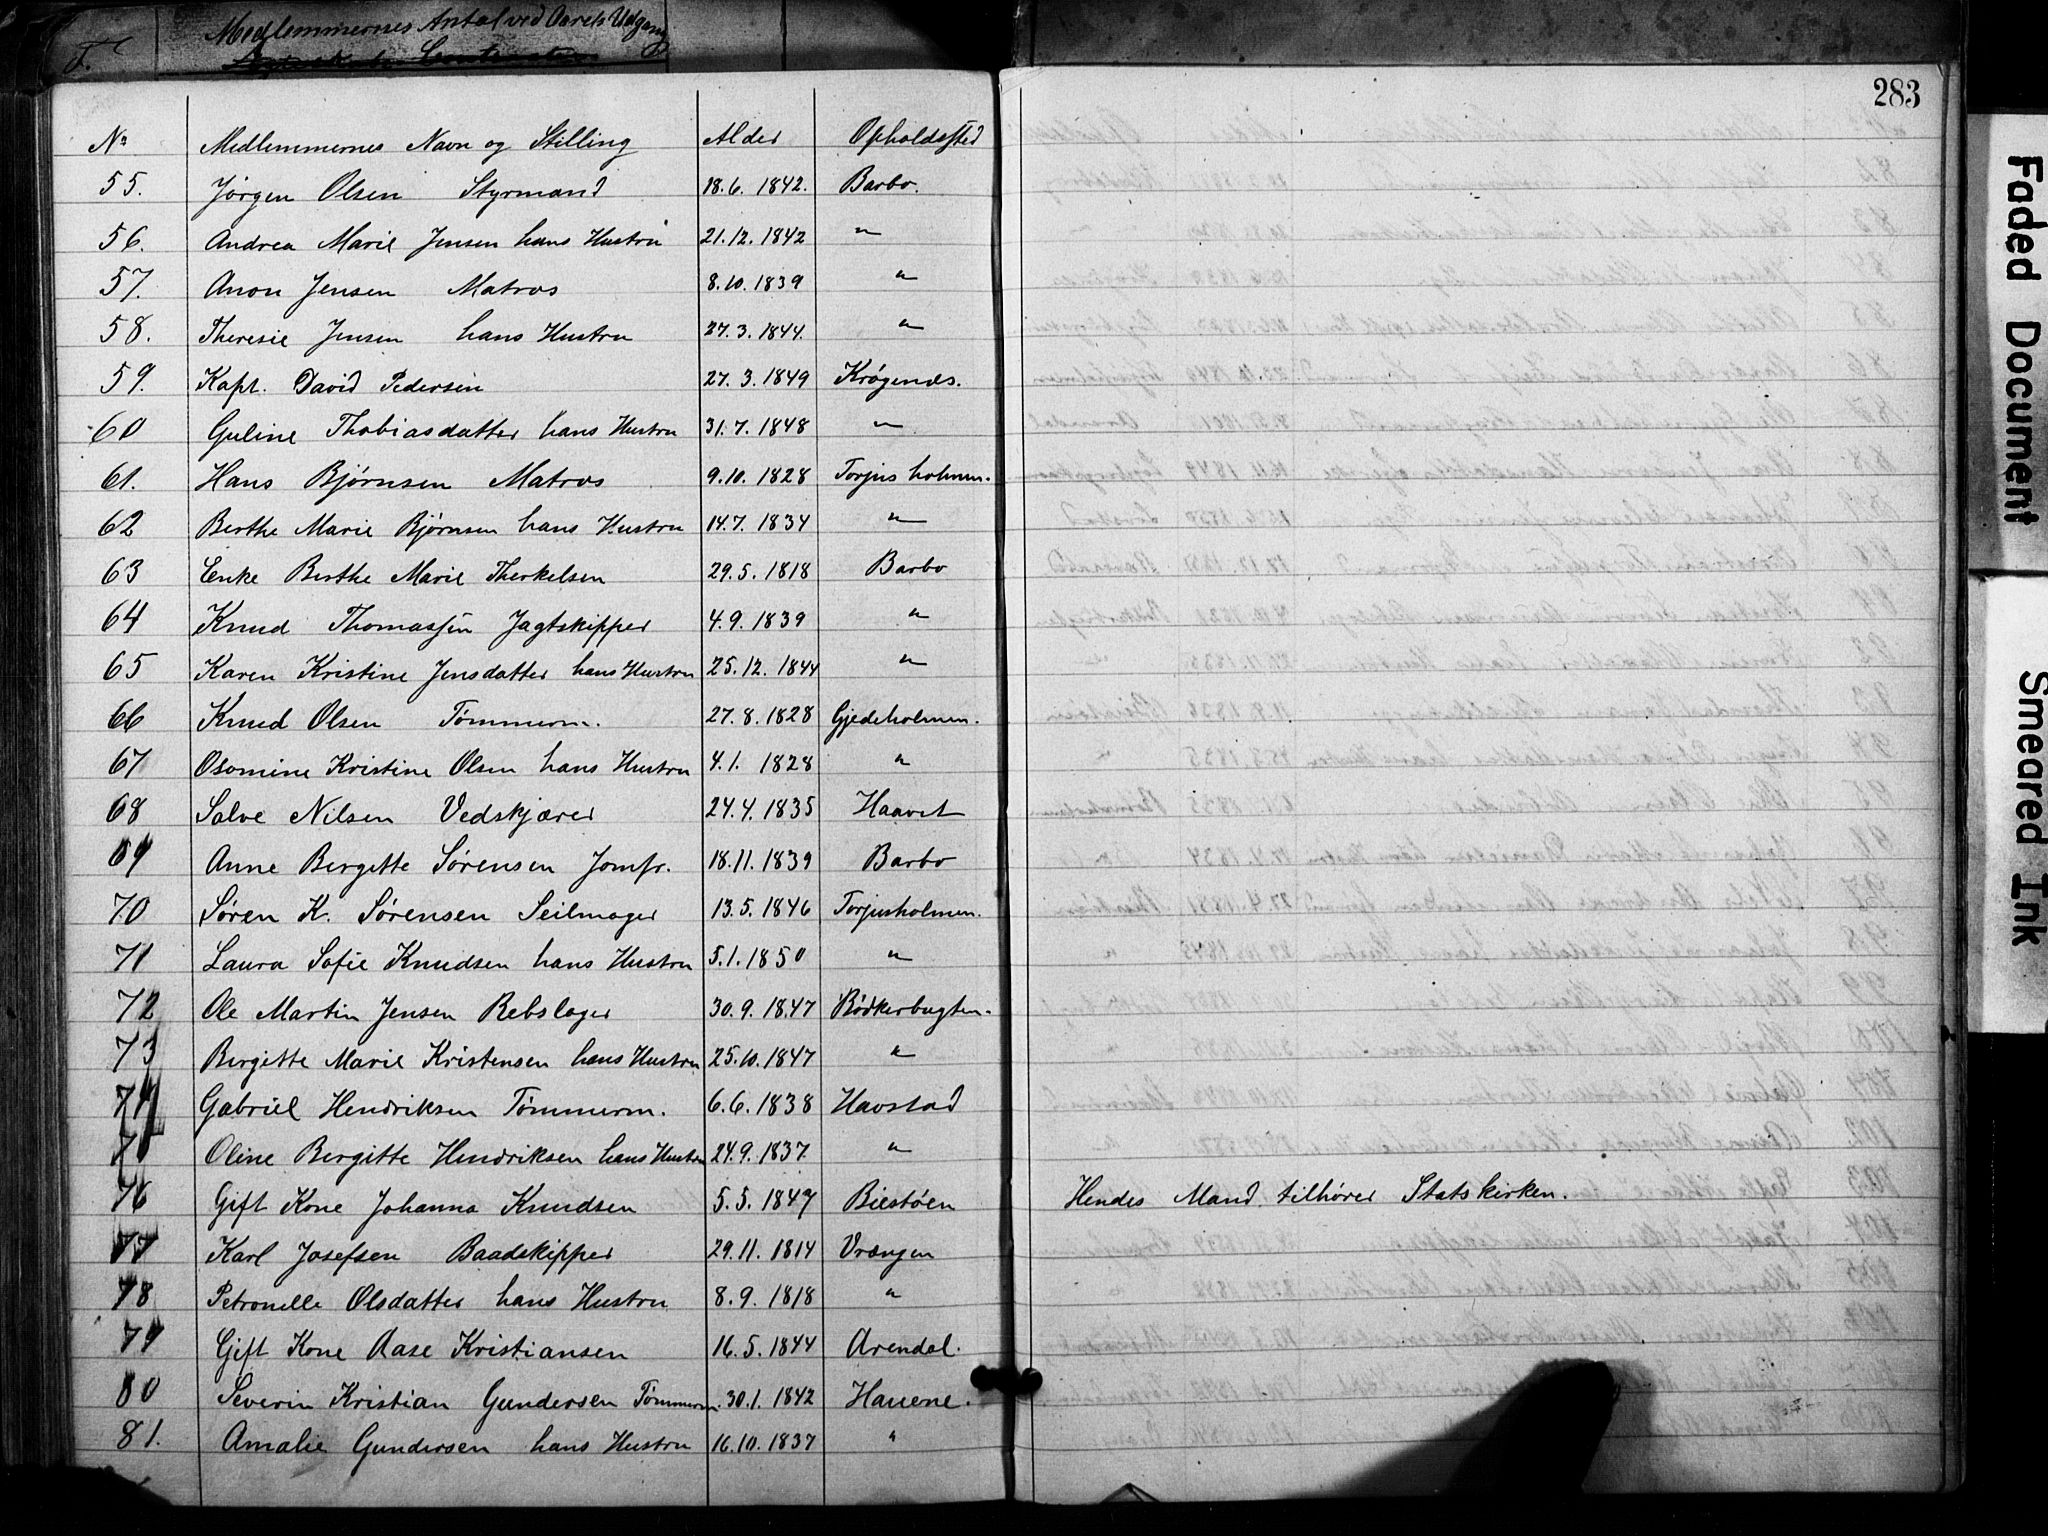 F. Medlemmernes Antal ved Aarets Udgang
283
No Medlemmernes Navn og Stilling Alder Opholdssted
55. Jørgen Olsen Styrmand 18.6. 1842. Barbo.
56. Andrea Marie Jensen hans Hustru 21.12. 1842 "
57. Anon Jensen Matros 8.10. 1839 "
58. Theresie Jensen hans Hustru 27.3. 1844. "
59. Kapt. David Pedersen 27.3. 1849 Krøgenæs.
60 Guline Thobiasdatter hans Hustru 31.7. 1848 "
61. Hans Bjørnsen Matros 9.10. 1828 Torjusholmen.
62 Berthe Marie Bjørnsen hans Hustru 14.7. 1834 "
63 Enke Berthe Marie Therkelsen 29.5. 1818 Barbo
64 Knud Thomassen Jagtskipper 4.9. 1839 "
65 Karen Kristine Jensdatter hans Hustru 25.12. 1844 "
66 Knud Olsen Tømmerm. 27.8. 1828 Gjedeholmen.
67 Osomine Kristine Olsen hans Hustru 4.1. 1828 "
68 Salve Nilsen Vedskjærer 24.4. 1835 Haavet
69 Anne Bergette Sørensen Jomfr. 18.11. 1839 Barbo
70 Søren K. Sørensen Seilmager 13.5. 1846 Torjusholmen.
71 Laura Sofie Knudsen hans Hustru 5.1. 1850 "
72 Ole Martin Jensen Rebslager 30.9. 1847 Bødkerbugten.
73 Bergette Marie Kristensen hans Hustru 25.10. 1847 "
74 Gabriel Hendriksen Tømmerm. 6.6. 1838 Havstad
75 Oline Bergitte Hendriksen hans Hustru 24.9. 1837 "
76 Gift Kone Johanna Knudsen 5.5. 1847 Biestøen Hendes Mand tilhører Statskirken.
77 Karl Josefsen Baadskipper 29.11. 1814 Vrængen
78 Petronelle Olsdatter hans Hustru 8.9. 1818 "
79 Gift Kone Aase Kristiansen 16.5. 1844 Arendal.
80 Severin Kristian Gundersen Tømmerm. 30.1. 1842 Hauene.
81. Amalie Gundersen hans Hustru 16.10. 1837 "
Faded Document
Smeared Ink